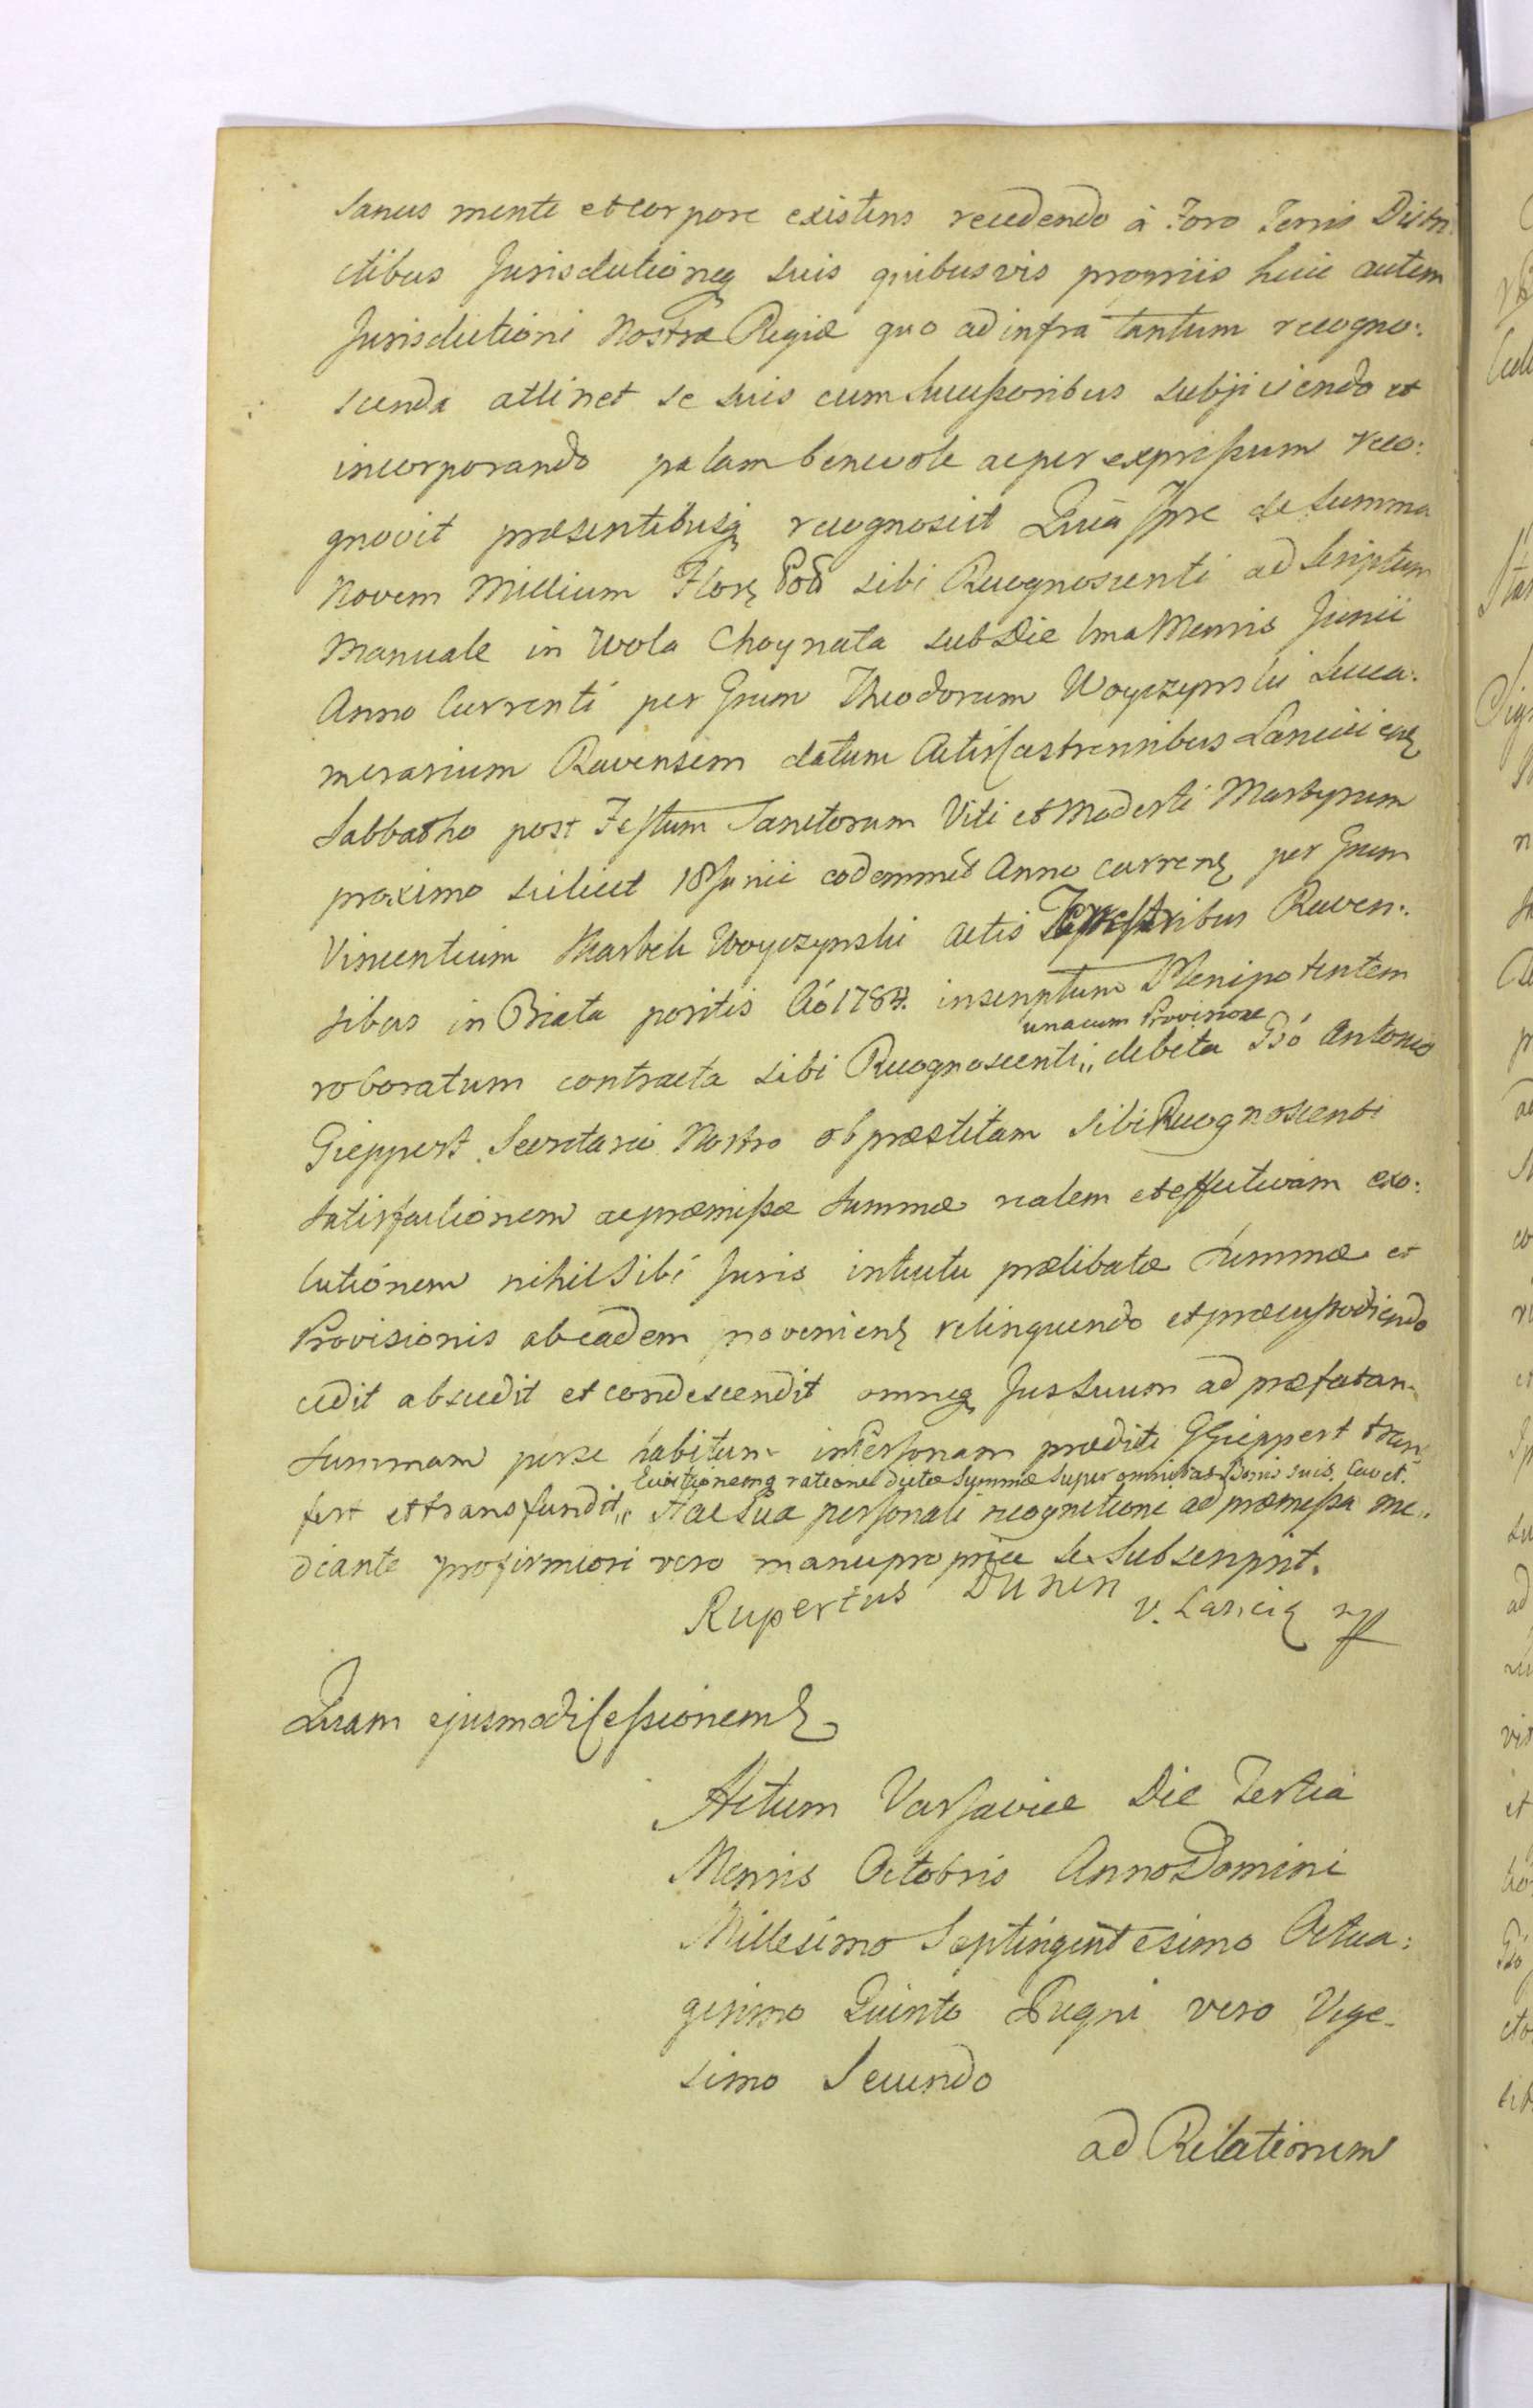 Sanus mente et corpore existens recedendo à Foro Terris Distri
ctibus Jurisdictioneq suis quibusvis propriis huic autem
Jurisdictioni Nostræ Regiæ quo ad infra tantum recogno:
scenda attinet se suis cum Successoribus subjiciendo et
incorporando palam benevole ac per expressum reco:
gnovit præsentibusq recognoscit Quia Ipse de summa
Novem Millium Flor Pol sibi Recognoscenti ad Scriptum
Manuale in Wola Choynata sub Die 1ma Mensis Junii
Anno Currenti per Grum Theodorum Woyczynski Succa:
merarium Ravensem datum Actis Castrensibus Lanciciens
Sabbatho post Festum Sanctorum Viti et Modesti Martyrum
proximo scilicet 18 Junii eodemmet Anno curren per Grum
Vincentium Woyczynski Actis Terrestribus Raven:
sibus in Biała positis Aó 1784. inscriptum Plenipotentem
roboratum contracta sibi Recognoscenti,, unacum Provisione debita Gsó Antonio
Gieppert Secretario Nostro ob præstitam sibi Recognoscenti
Satisfactionem ac præmissæ Summæ realem et effectivam exo:
lutionem nihil Sibi Juris intuitu prælibatæ Summæ et
Provisionis ab eadem provenien relinquendo et præcustodiendo
cedit abscedit et condescendit omneq Jus Suum ad præfatam
Summam per se habitum in Personam prædicti G Gieppert trans
fert et transfundit,, Evictionemq ratione dictæ Summæ super omnibus Bonis suis cavet. Hac sua personali recognitione ad præmissa me:
diante pro firmiori vero manu propria se Subscripsit.
Rupertus Dunin V. Lancic mpp
Quam ejusmodi Cessionem
Actum Varsaviæ Die Tertia
Mensis Octobris Anno Domini
Millesimo Septingentesimo Octua:
gesimo Quinto Regni vero Vige-
simo Secundo
ad Relationem